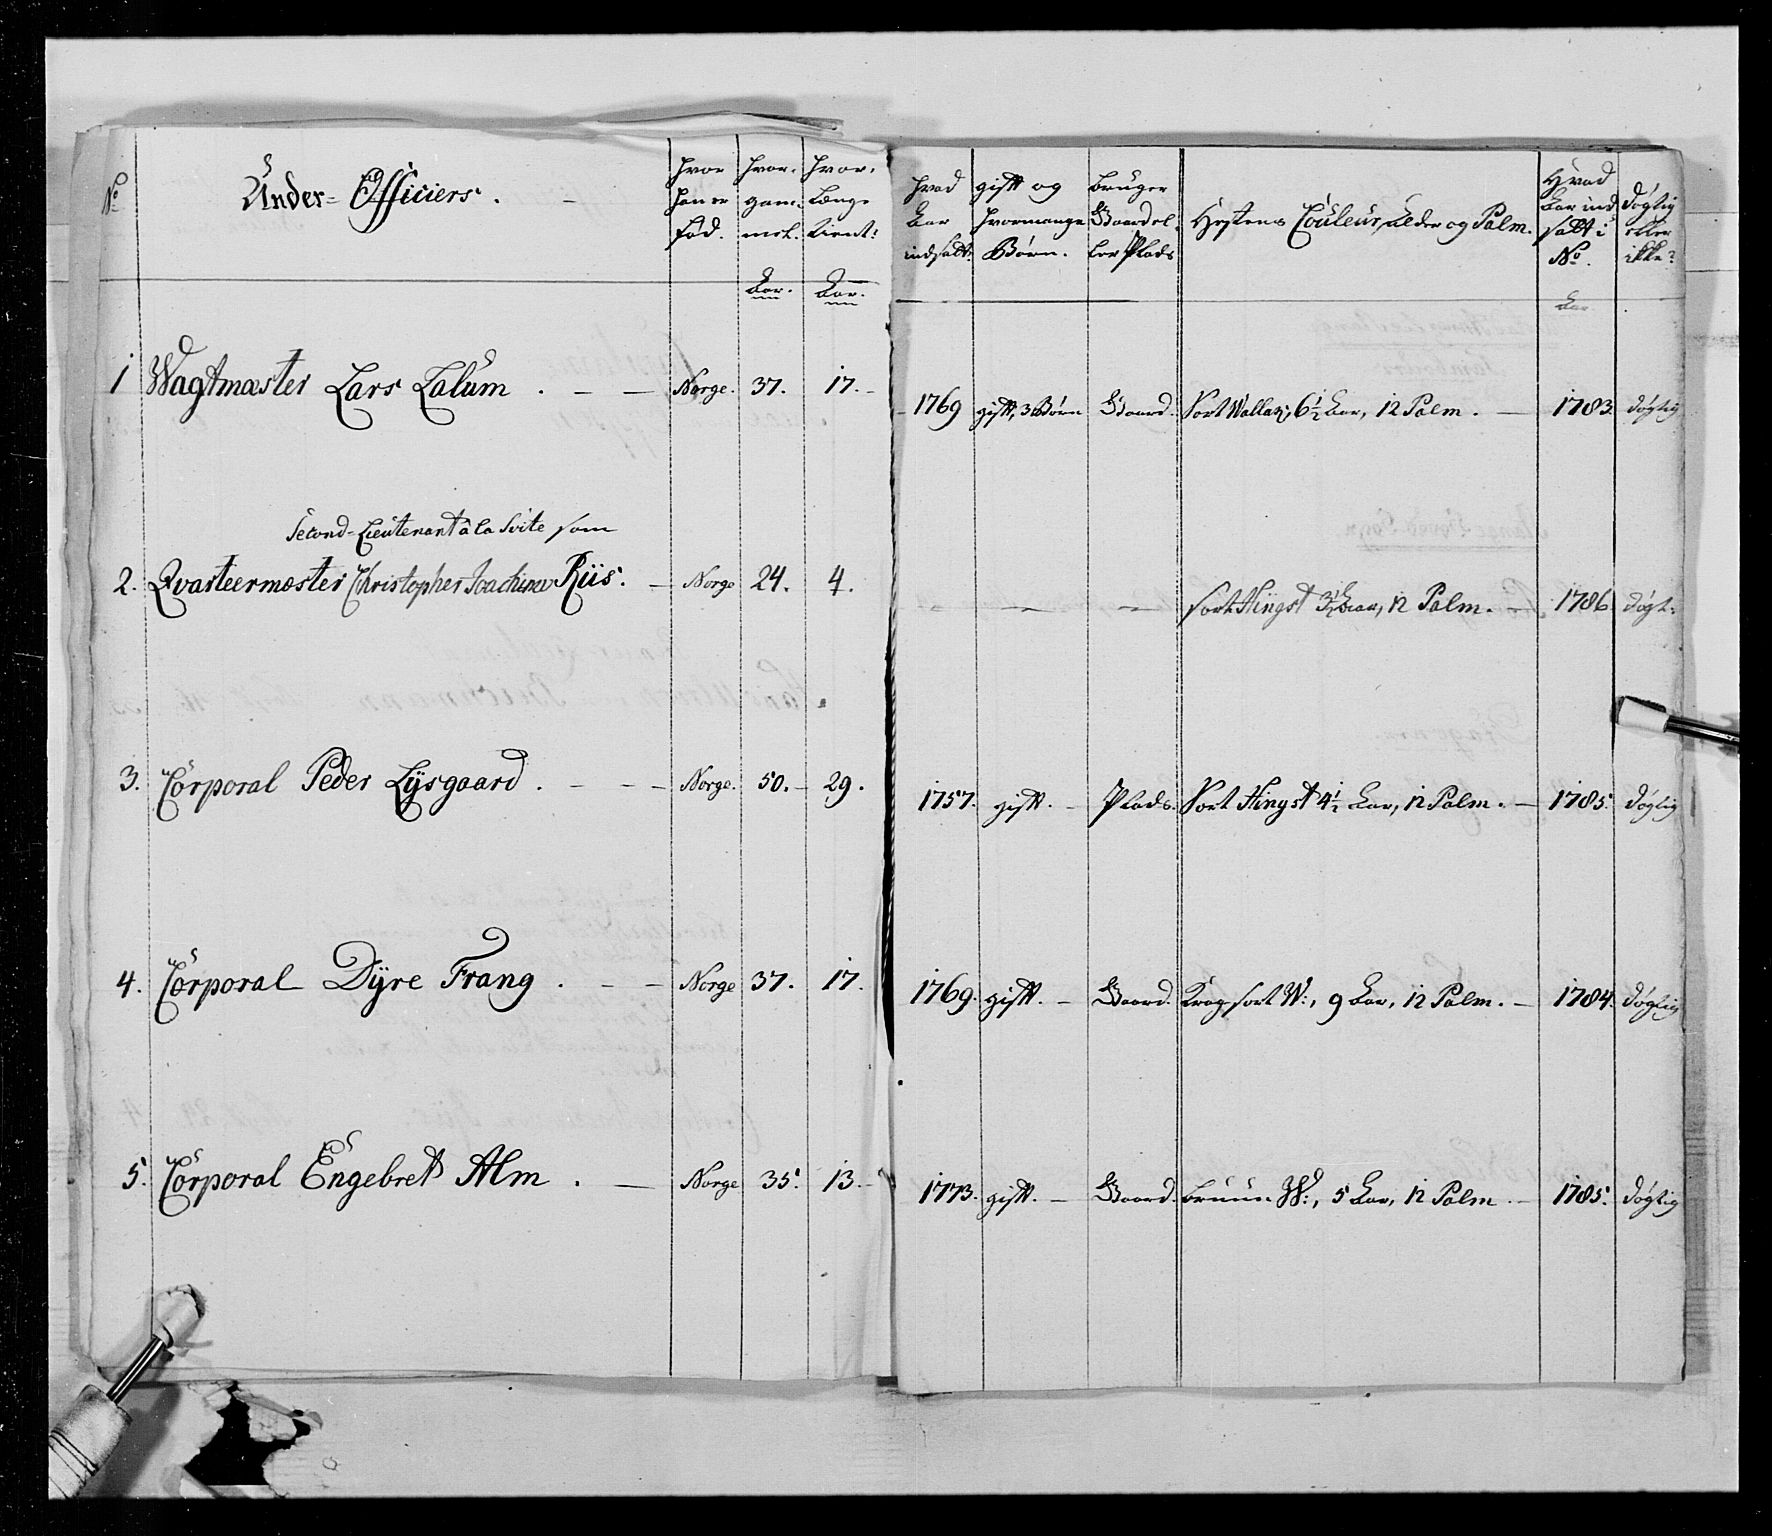 No
Under-Officiers.
hvor han er fød.
hvor gam- mel.
hvor længe tient:
hvad Aar indsatt:
gift og hvormange Børn.
bruger Gaard el- ler Plads
Hestens Couleur, Alder og Palm.
Hvad Aar ind satt i No.
døgtig eller ikke?
Aar.
Aar.
Aar
1 Wagtmæster Lars Lalum . — — Norge. 37. 17. — 1769 gift, 3 Børn Gaard. Sort Wallak, 6½ Aar, 12 Palm. — 1783. døgtig
Second-Lieutenant à la Svite som
2. Qvarteermester Christopher Joachim Riis. — Norge 24. 4. — — — sort Hingst 3½ Aar, 12 Palm. — 1786 døgt:
3. Corporal Peder Lysgaard . — — — Norge. 50. — 29. 1757. gift. — Plads. Sort Hingst 4½ Aar, 12 Palm. — 1785. døgtig
4. Corporal Dyre Frang . — — Norge 37. 17. 1769. gift. — Gaard. Kragsort W:, 9 Aar, 12 Palm. — 1784. døgtig
5. Corporal Engebret Alm . — Norge 35. 13. — 1773. gift. — Gaard. bruun W:, 5 Aar, 12 Palm. — 1785. døgtig